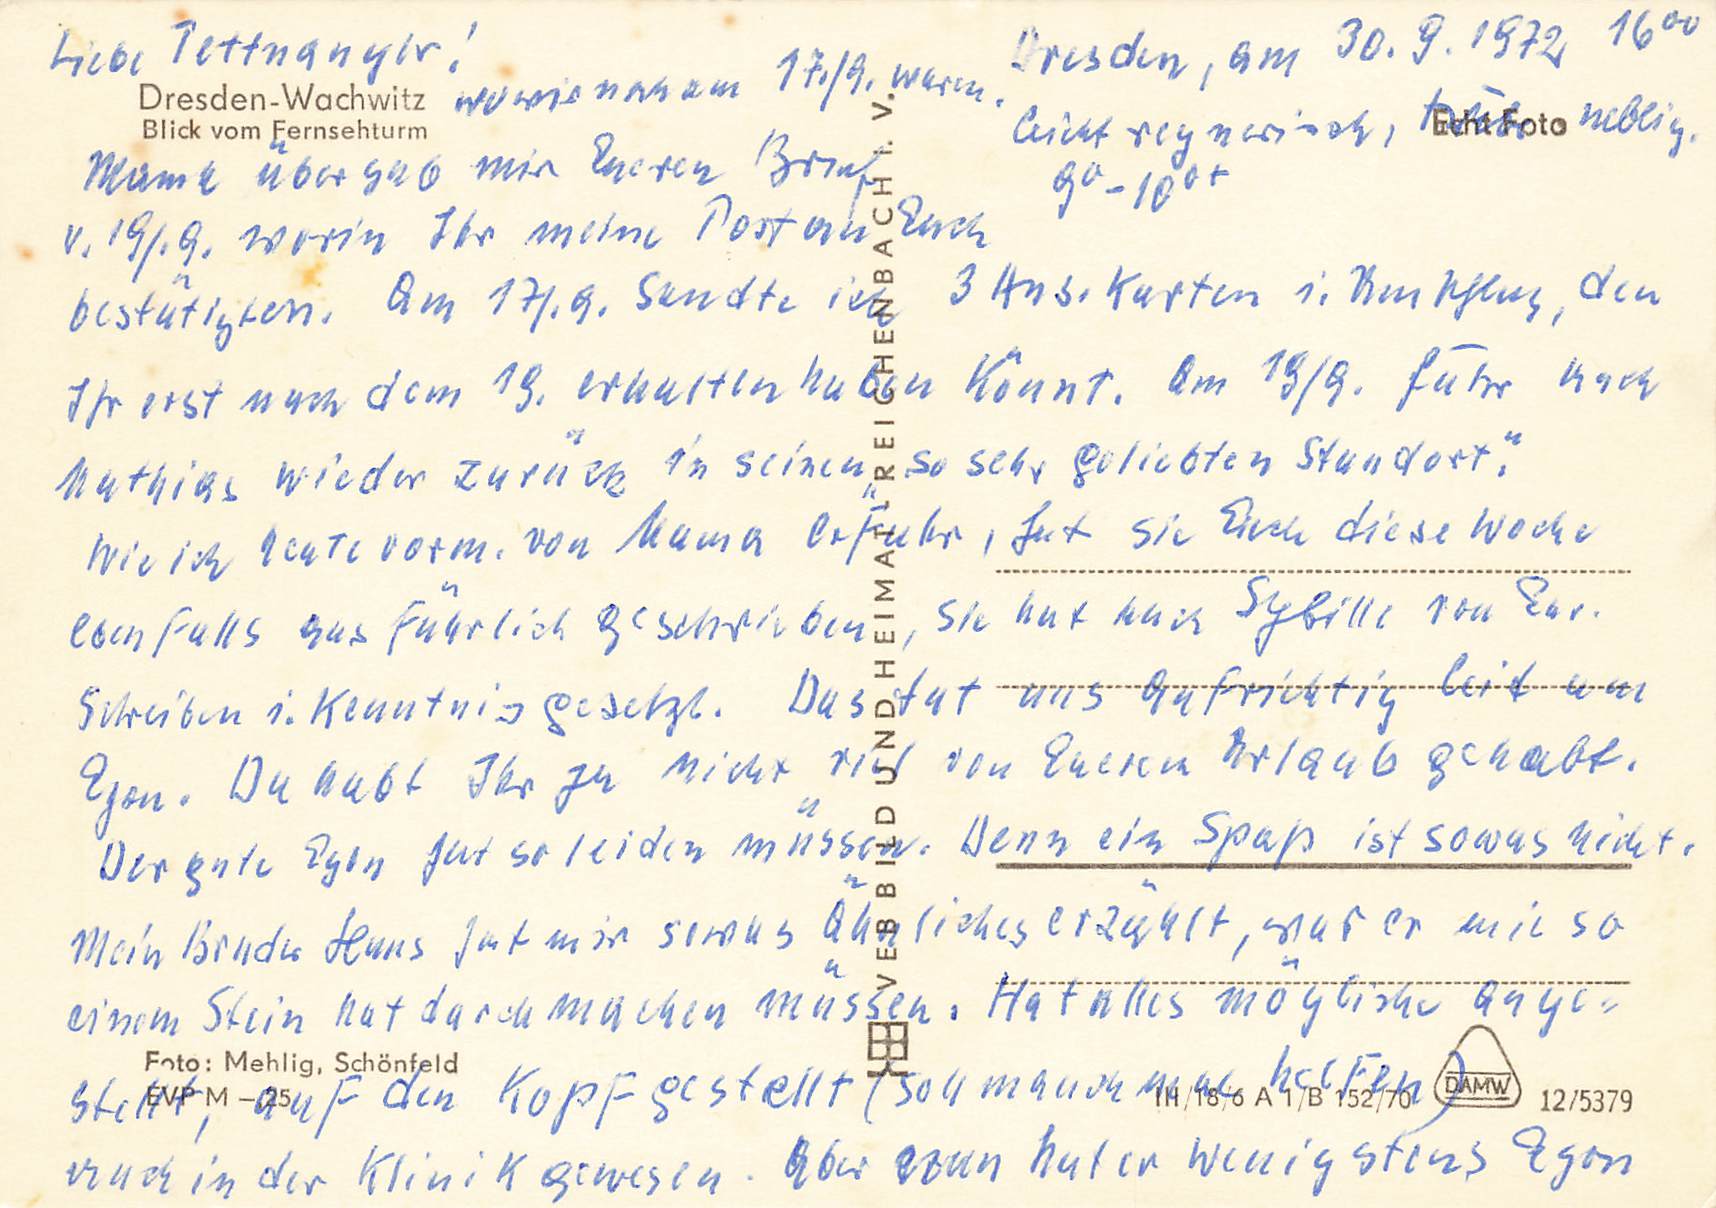 Liebe Tettnanger!
Dresden, am 30.9.1972 16⁰⁰
wo wir noch am 17./9. waren.
leicht regnerisch, trübe neblig.
9⁰-10⁰+
Dresden-Wachwitz
Blick vom Fernsehturm
Echt Foto
Mama übergab mir Eueren Brief
v. 19/.9. worin Ihr meine Post an Euch
bestätigten. Am 17/.9. Sandte ich 3 Ans.Karten i. Umschlag, den
Ihr erst nach dem 19. erhalten haben könnt. Am 19/9. fuhr auch
Mathias wieder zurück in seinen „so sehr geliebten Standort".
Wie ich heute vorm. von Mama erfuhr, hat sie Euch diese Woche
ebenfalls ausführlich geschrieben, sie hat auch Sybille von Eur.
Schreiben i. Kenntnis gesetzt. Das tat uns aufrichtig leid um
Egon. Da habt Ihr ja nicht viel von Euerem Urlaub gehabt.
Der gute Egon hat so leiden müssen. Denn ein Spaß ist sowas nicht.
Mein Bruder Hans hat mir sowas ähnliches erzählt, was er mit so
einem Stein hat durchmachen müssen. Hat alles mögliche ange=
stellt, auf den Kopf gestellt (soll manchmal helfen)
auch in der Klinik gewesen. Aber nun hat er wenigstens Egon
VEB BILD UND HEIMAT REICHENBACH I. V.
Foto: Mehlig, Schönfeld
EVP M –.25
III/18/6 A 1/B 152/70
DAMW
12/5379